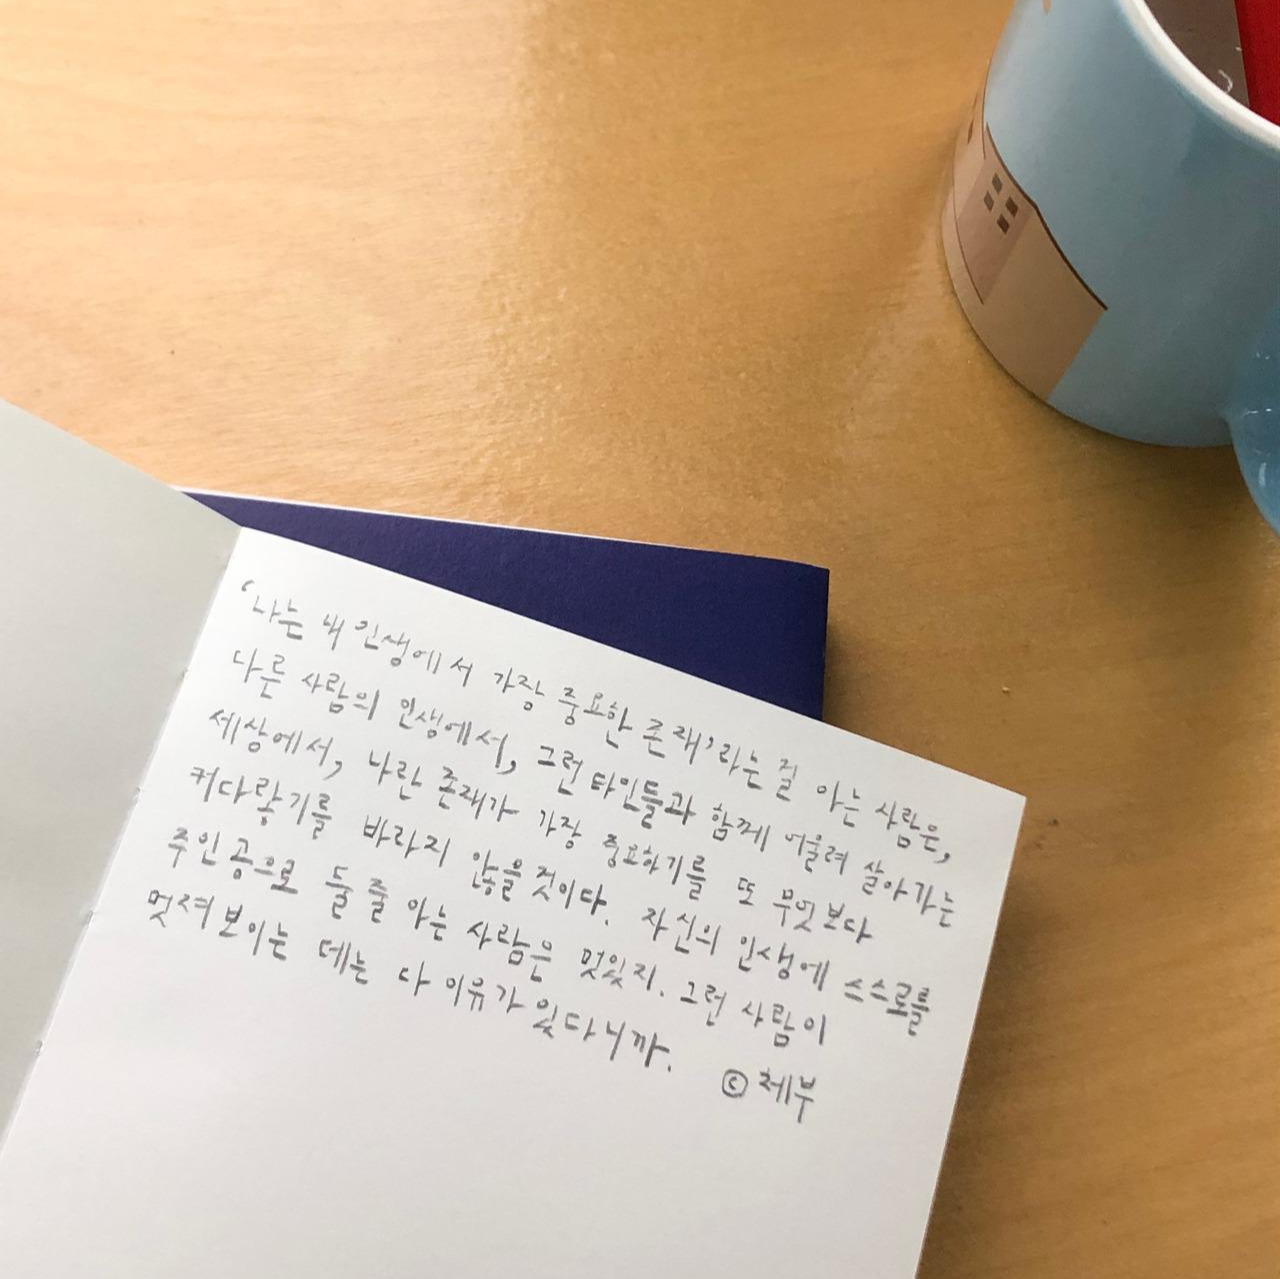 ‘나는 내 인생에서 가장 중요한 존재’라는 걸 아는 사람은,
다른 사람의 인생에서, 그런 타인들과 함께 어울려 살아가는
세상에서, 나란 존재가 가장 중요하기를 또 무엇보다
커다랗기를 바라지 않을 것이다. 자신의 인생에 스스로를
주인공으로 둘 줄 아는 사람은 멋있지. 그런 사람이
멋져 보이는 데는 다 이유가 있다니까.
© 체부